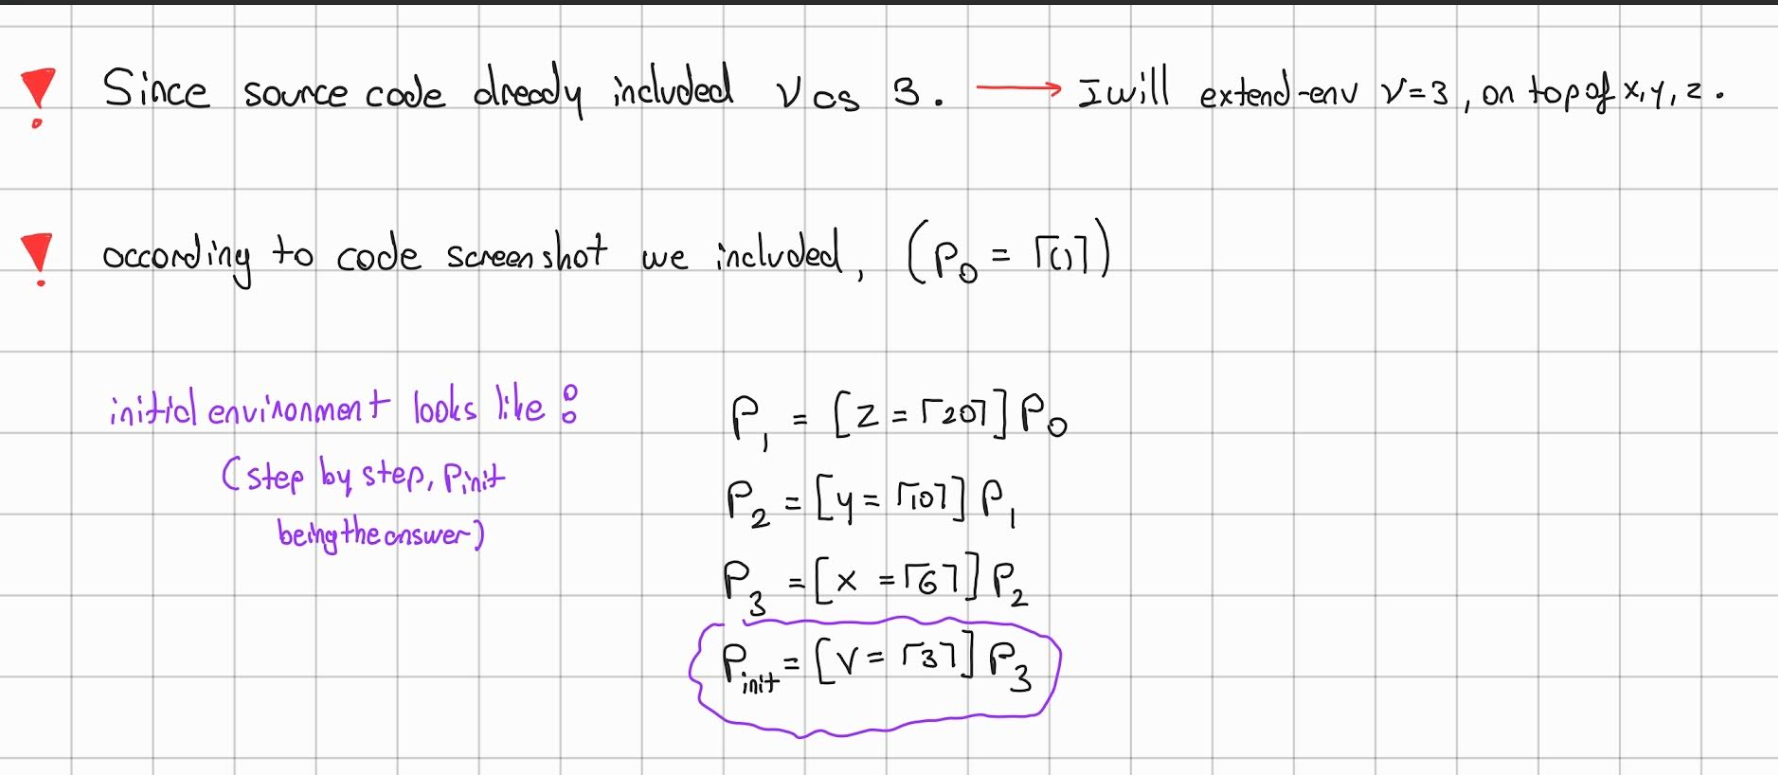 ! Since source code already included V as 3. → I will extend-env V=3, on top of x, y, z.
! according to code screenshot we included, (P₀ = ⌈()⌉)
initial environment looks like :
(step by step, Pinit
being the answer)
P₁ = [z = ⌈20⌉] P₀
P₂ = [y = ⌈10⌉] P₁
P₃ = [x = ⌈6⌉] P₂
Pinit = [V = ⌈3⌉] P₃